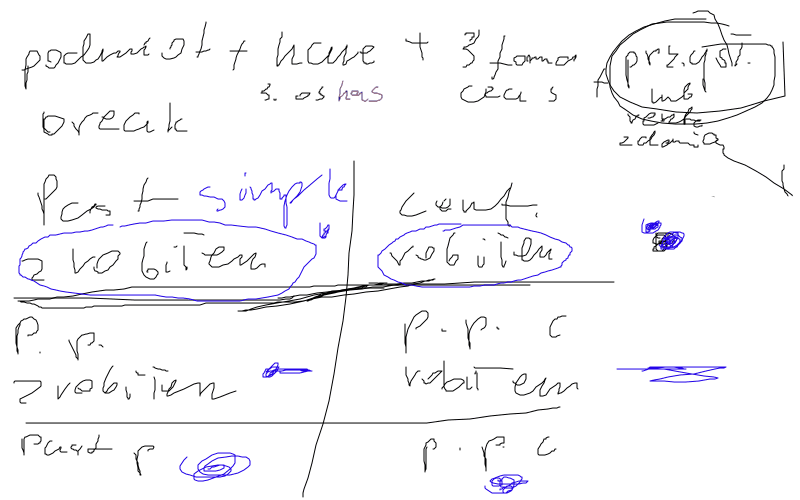 podmiot + have + 3 forma + przysł.
3. os has
czas
lub
reszta
zdania
break
Past simple
cont.
zrobiłem
robiłem
P. p.
p. p. c
zrobiłem
robiłem
Past p
p. p c